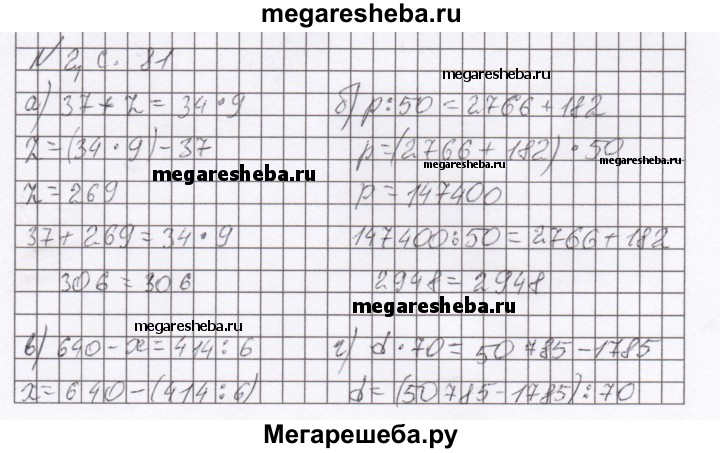 megaresheba.ru
N 2, с. 81
megaresheba.ru
а) 37 + z = 34 · 9
б) p : 50 = 2766 + 182
z = (34 · 9) - 37
p = (2766 + 182) · 50
megaresheba.ru
megaresheba.ru
megaresheba.ru
z = 269
p = 147400
37 + 269 = 34 · 9
147400 : 50 = 2766 + 182
306 = 306
2948 = 2948
megaresheba.ru
megaresheba.ru
в) 640 - x = 414 : 6
г) d · 70 = 50 785 - 1785
x = 640 - (414 : 6)
d = (50 785 - 1785) : 70
Мегарешеба.ру